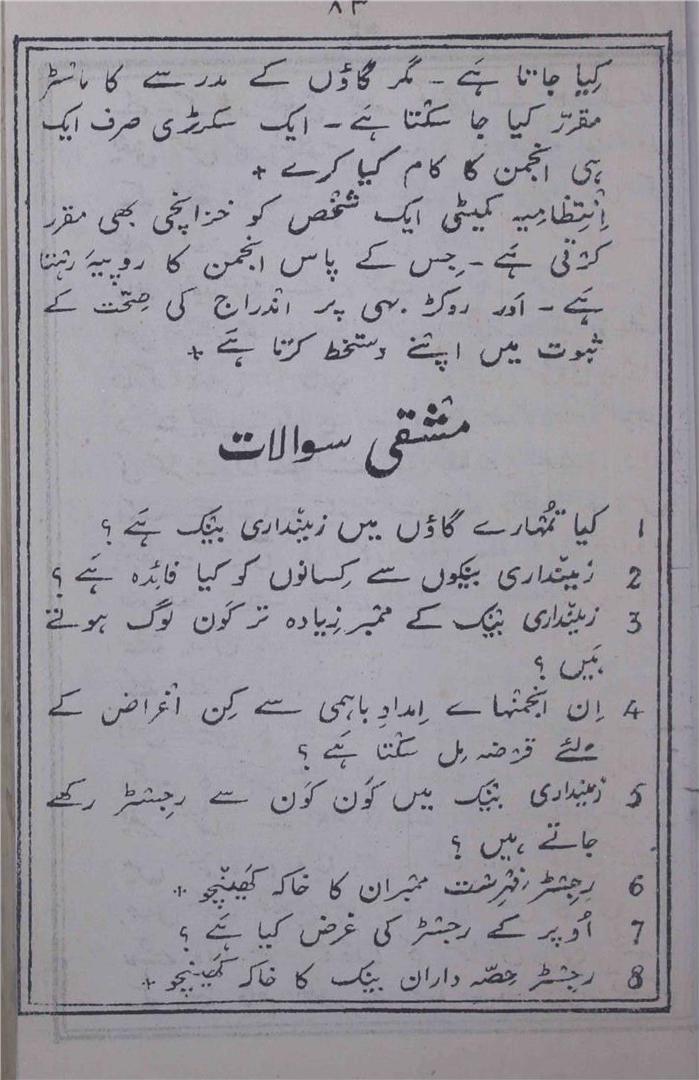 ۸۳
کِیا جاتا ہَے ـ مگر گاؤں کے مدرسے کا ماسٹر
مقرّر کیا جا سکْتا ہَے ـ ایک سکرٹری صرف ایک
ہی انجمن کا کام کیا کرے +
اِنْتِظامیہ کمیٹی ایک شخْص کو خزانچی بھی مقرر
کرْتی ہَے ـ جِس کے پاس انجمن کا روپیہَ رہْتا
ہَے ـ اَور روکڑ بہی پر اندراج کی صِحّت کے
ثبوت میں اپنے دستخط کرْتا ہَے +
مشْقی سوالات
1 کیا تُمْہارے گاؤں میں زمِیْنداری بینک ہَے ؟
2 زمِیْنداری بینکوں سے کِسانوں کو کیا فائدہ ہَے ؟
3 زمِیْنداری بینک کے ممْبر زِیادہ تر کَون لوگ ہوتے
ہَیں ؟
4 اِن انجمنہاے اِمدادِ باہمی سے کِن اغْراض کے
لئے قرْضہ مِل سکْتا ہَے ؟
5 زمِیْنداری بینک میں کَون کَون سے رجِسْٹر رکھے
جاتے ہیں ؟
6 رجِسْٹر فہرِسْت ممْبران کا خاکہ کھَینْچو +
7 اُوپر کے رجسْٹر کی غرض کیا ہَے ؟
8 رجسْٹر حِصّہ داران بینک کا خاکہ کھَینْچو +